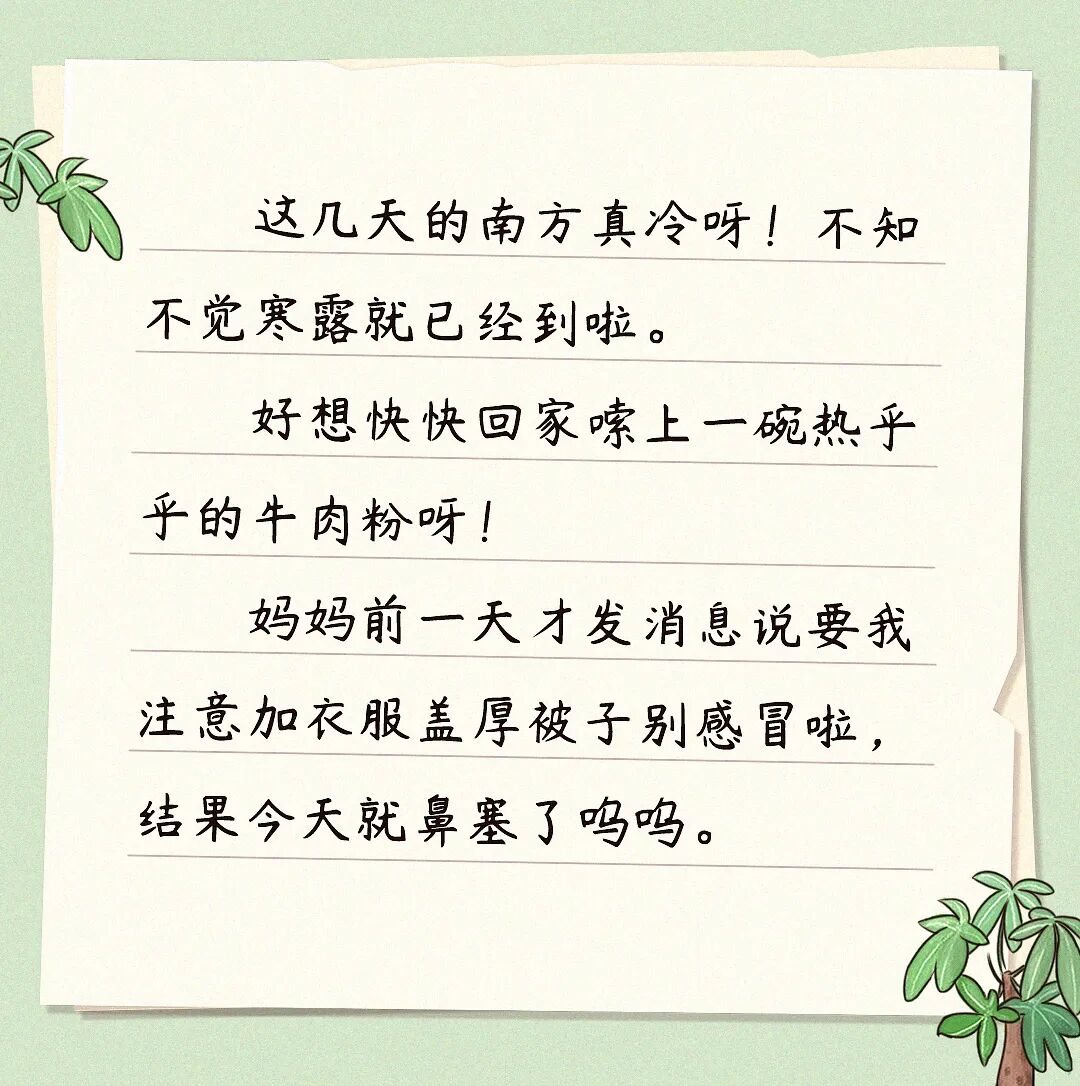 这几天的南方真冷呀！不知
不觉寒露就已经到啦。
好想快快回家嗦上一碗热乎
乎的牛肉粉呀！
妈妈前一天才发消息说要我
注意加衣服盖厚被子别感冒啦，
结果今天就鼻塞了呜呜。